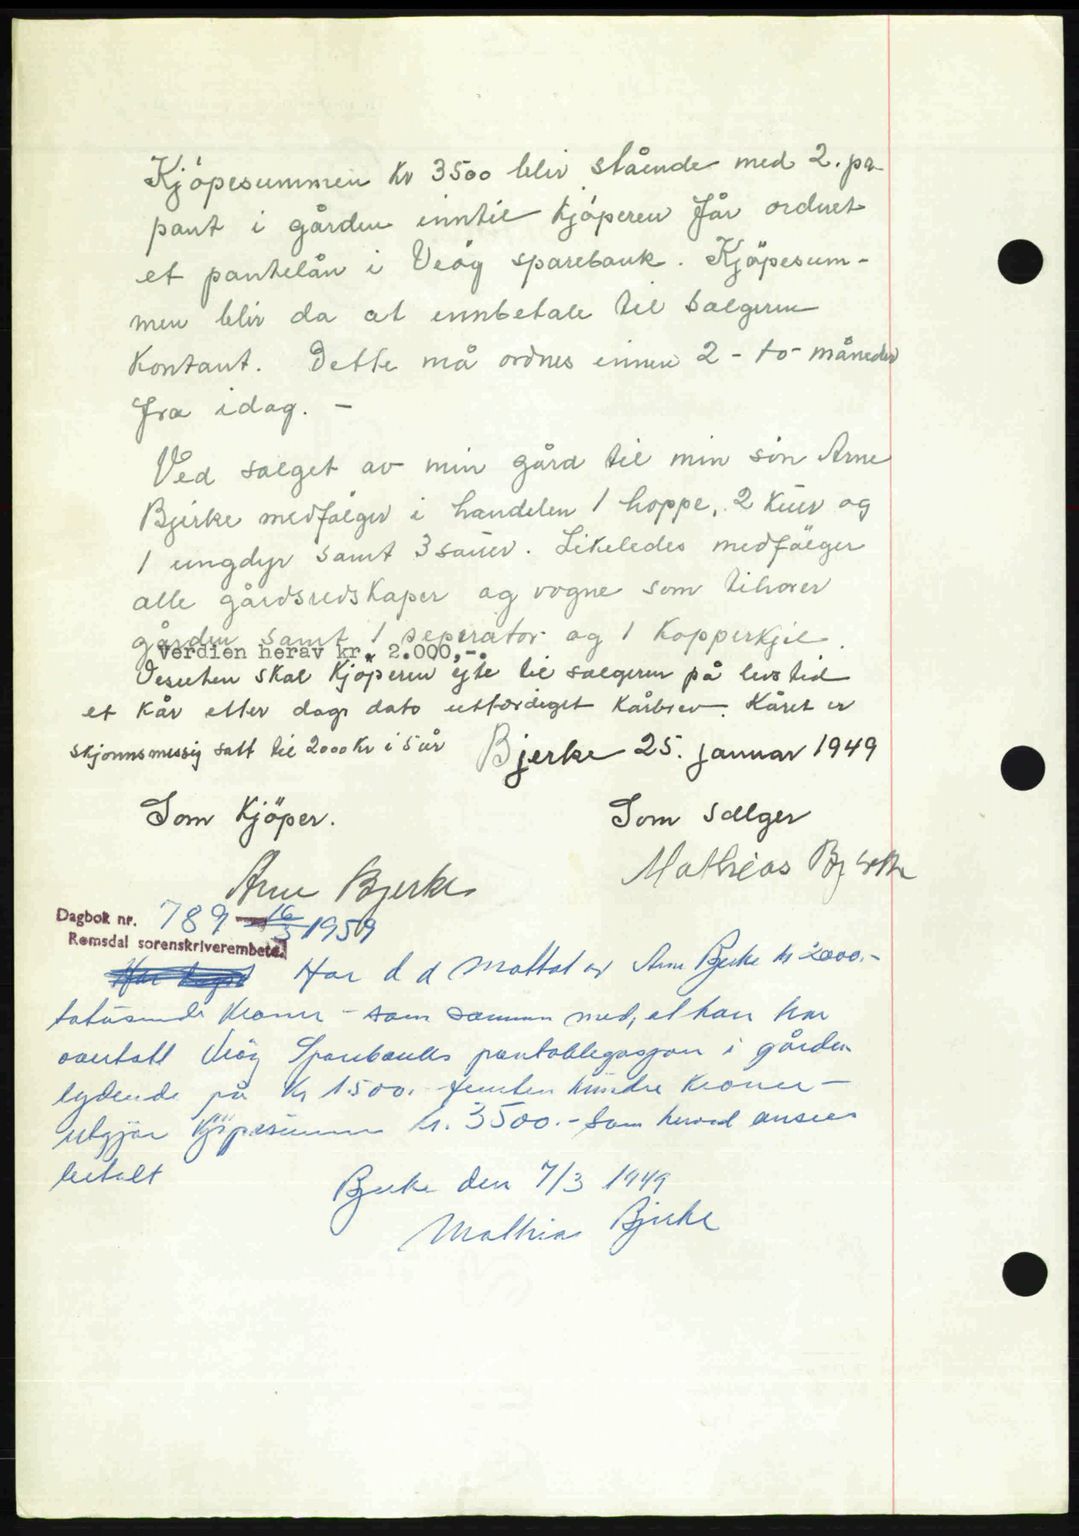 Kjöpesummen kr 3500 blir stående med 2. pr.
pant i gården inntil kjöperen får ordnet
et pantelån i Veöy sparebank. Kjöpesum-
men blir da at innbetale til Sælgeren
Kontant. Dette må ordnes innen 2 - to - måneder
fra idag. -
Ved salget av min gård til min sön Arne
Bjerke medfølger i handelen 1 hoppe, 2 kuer og
1 ungdyr samt 3 sauer. Likeledes medfølger
alle gårdsredskaper og vogne som tilhører
gården samt 1 seperator og 1 Kopperkjel.
Verdien herav kr. 2.000,-.
Desuten skal Kjöperen yte til sælgeren på livstid
et kår etter dags dato utfærdiget kårbrev. Kåret er
skjønnsmessig satt til 2000 Kr i 5 år
Bjerke 25. januar 1949
Som Kjöper.
Som Sælger
Arne Bjerke
Mathias Bjerke
Dagbok nr. 789 - 16/3 1959
Romsdal sorenskriverembete
Har d d Mottat av Arne Bjerke kr 2000.-
totusende Kroner - som sammen med, at han har
overtatt Veöy Sparebanks pantobligasjon i gården
lydende på Kr 1500.- femten hundre Kroner -
utgjør Kjöpesummen kr. 3500.- Som herved ansees
betalt
Bjerke den 7/3 1949
Mathias Bjerke